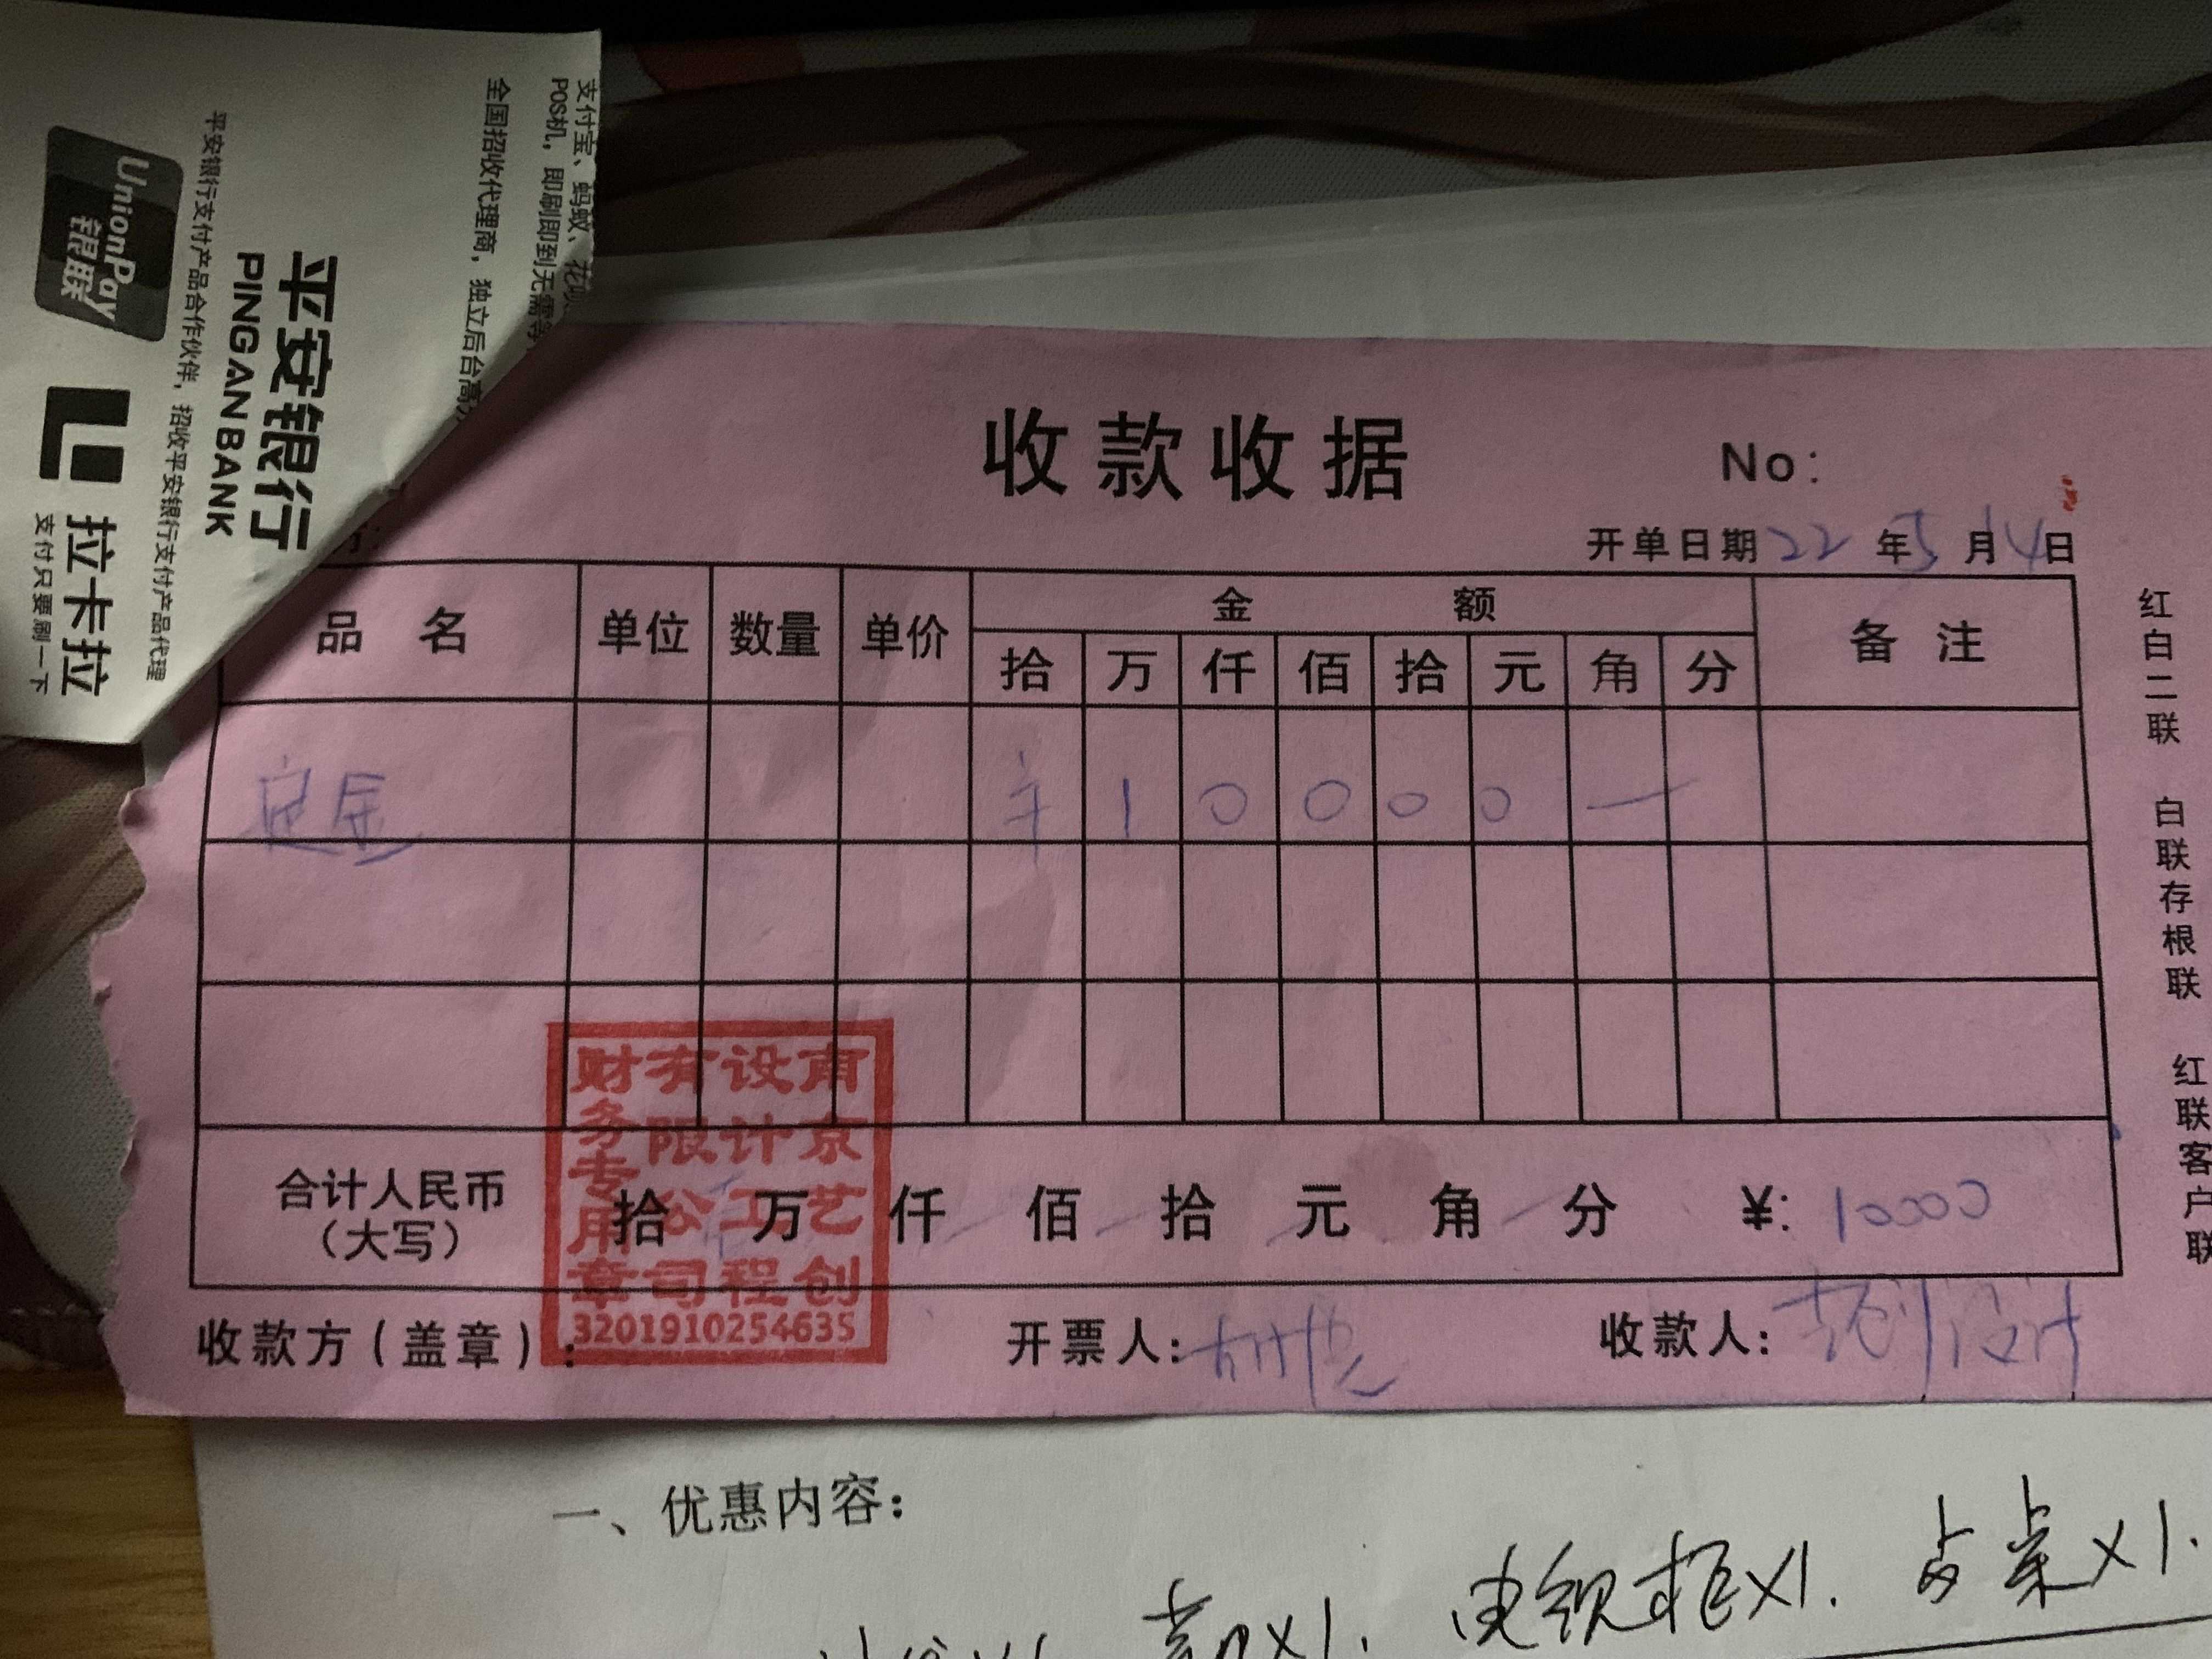 支付宝、蚂蚁、花呗
POS机，即刷即到无需等
全国招收代理商，独立后台高
平安银行
PING AN BANK
平安银行支付产品合作伙伴，招收平安银行支付产品代理
UnionPay
银联
拉卡拉
支付只要刷一下
收款收据
No:
开单日期 22 年 5 月 14 日
品 名 单位 数量 单价 金 额 备 注
拾 万 仟 佰 拾 元 角 分
定金 1 0 0 0 0 —
合计人民币
（大写） 拾 万 仟 佰 拾 元 角 分 ¥: 10000
南京艺创
设计工程
有限公司
财务专用章
3201910254635
收款方（盖章）： 开票人: 收款人:
红白二联 白联存根联 红联客户联
一、优惠内容：
电视柜X1. 桌X1.